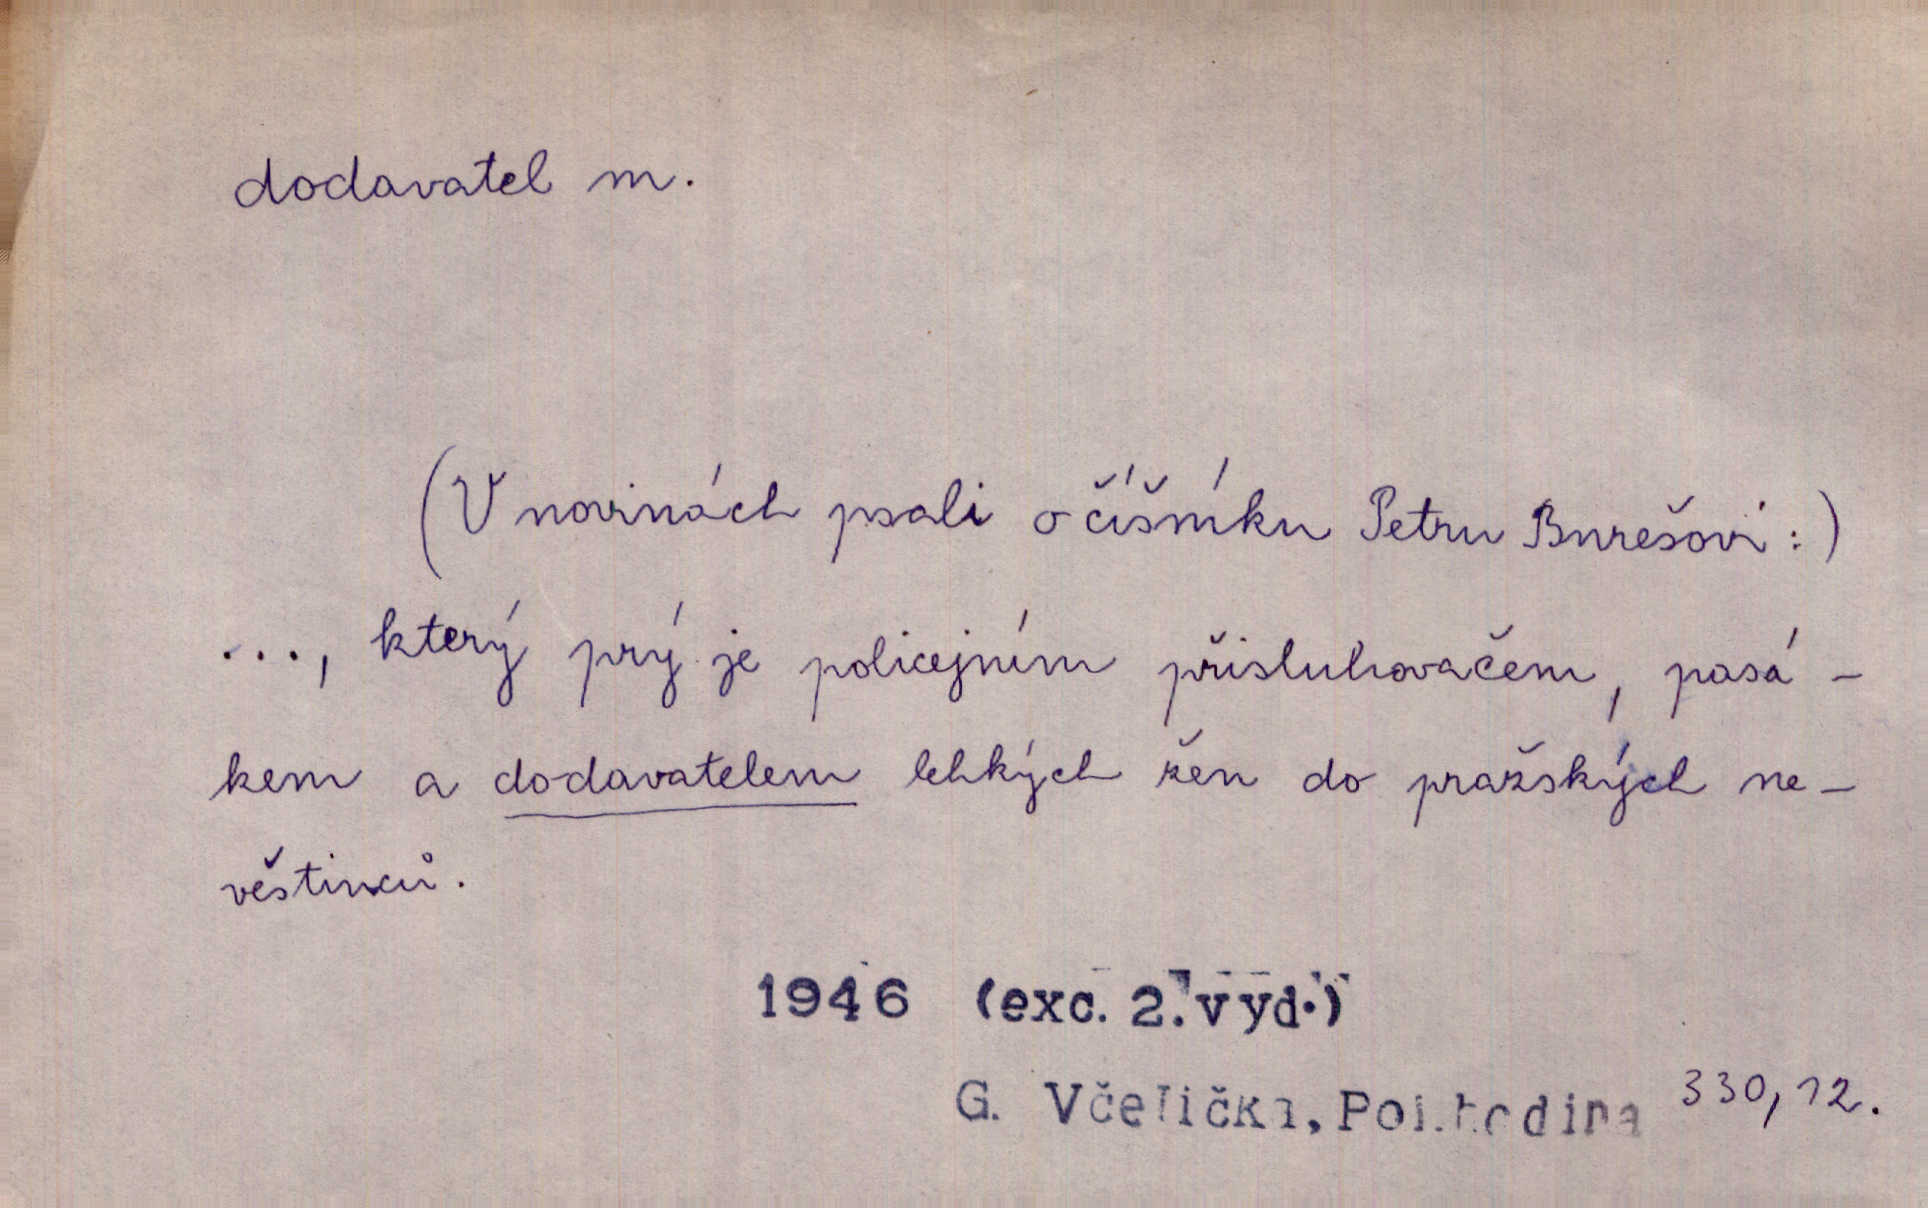 dodavatel m.
(V novinách psali o číšníku Petru Burešovi:)
..., který prý je policejním přisluhovačem, pasá-
kem a dodavatelem lehkých žen do pražských ne-
věstinců.
1946 (exc. 2. vyd.)
G. Včelička, Pol.hodina 330, 12.